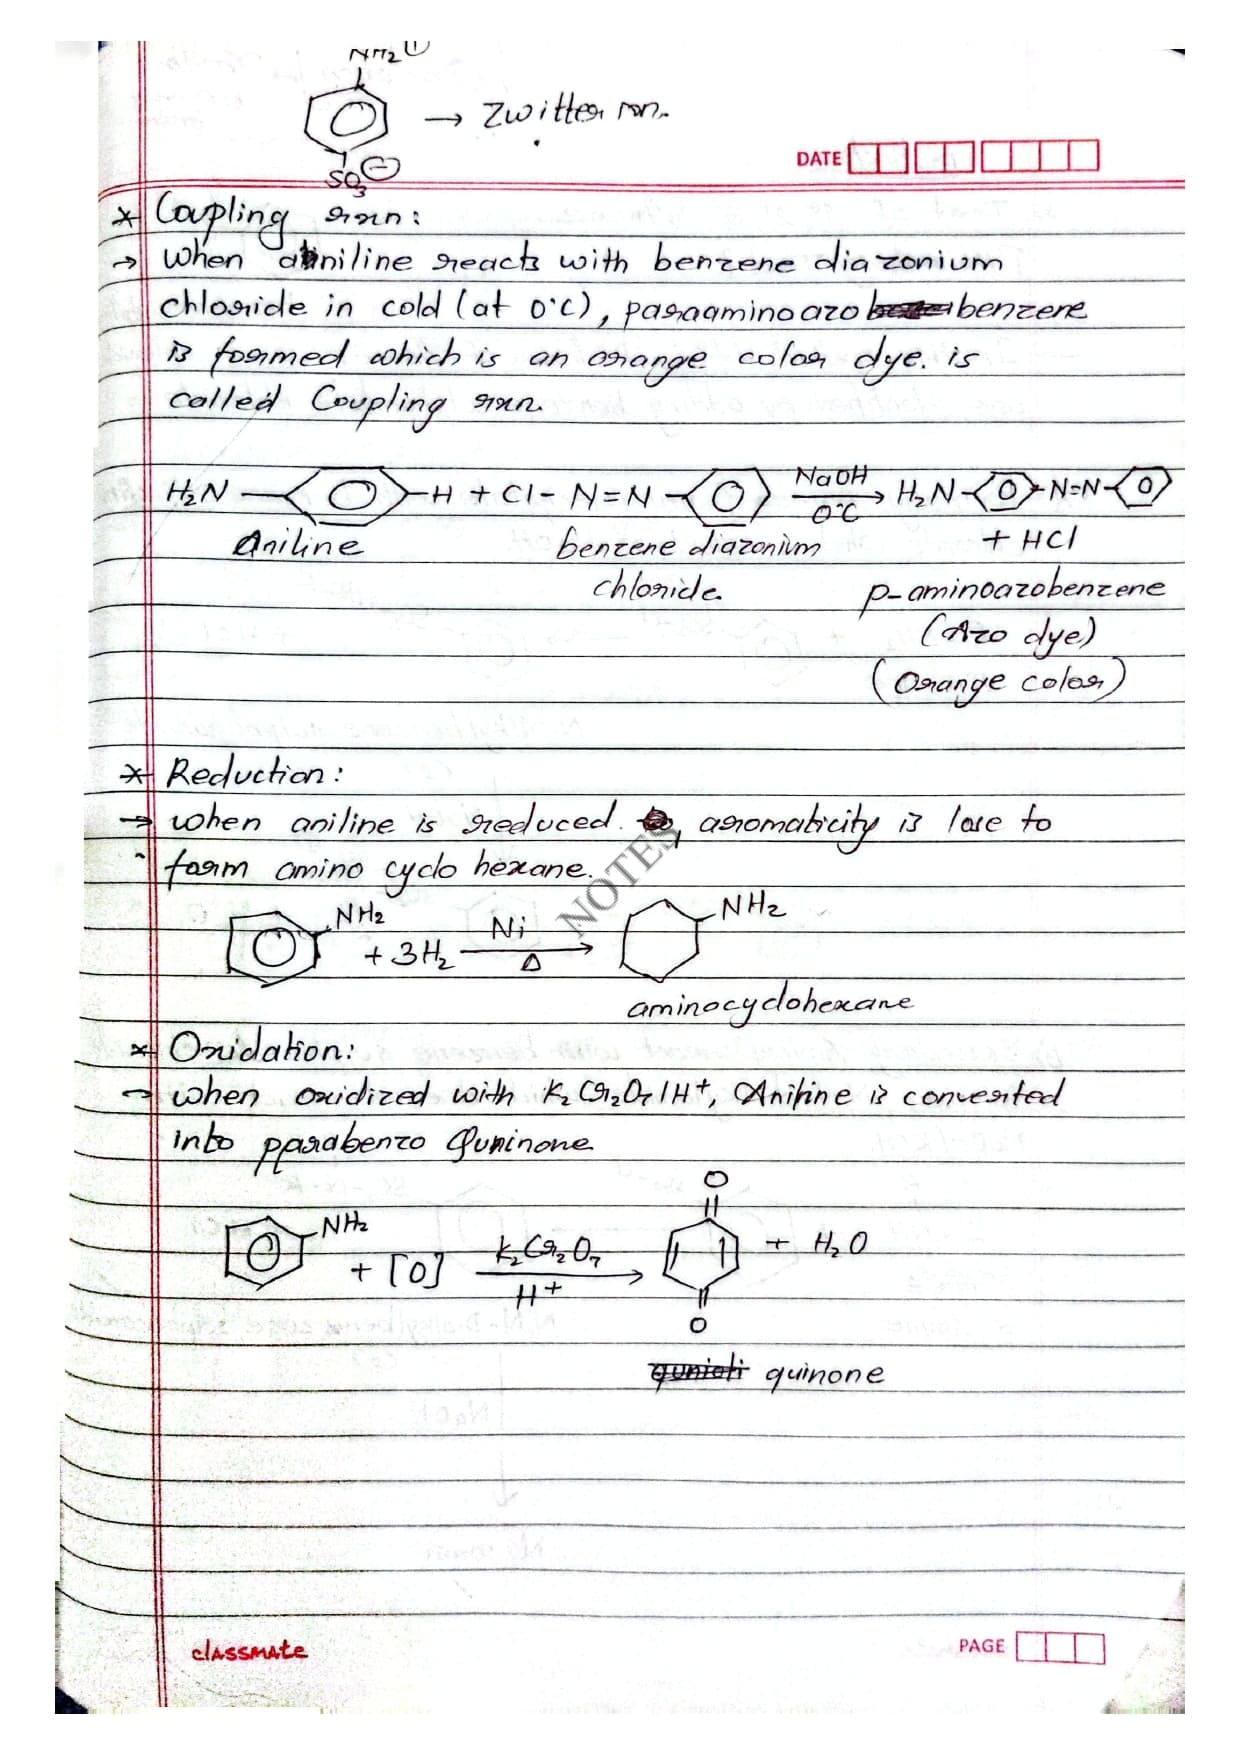 NH2 +
→ Zwitter ion.
SO3 -
DATE
* Coupling rxn:
→ When aniline reacts with benzene diazonium
chloride in cold (at 0°C), paraaminoazo benzene
is formed which is an orange color dye. is
called Coupling rxn.
H2N – – H + Cl – N = N – NaOH → H2N – – N=N –
0°C
Aniline benzene diazonium + HCl
chloride p-aminoazobenzene
(Azo dye)
(Orange color)
* Reduction:
→ when aniline is reduced, aromaticity is lose to
form amino cyclo hexane.
NOTES
NH2 + 3H2 Ni → NH2
Δ
aminocyclohexane
* Oxidation:
→ when oxidized with K2Cr2O7/H+, Aniline is converted
into pparabenzo Quninone
O
NH2 + [O] K2Cr2O7 → + H2O
H+
O
quinone
classmate
PAGE